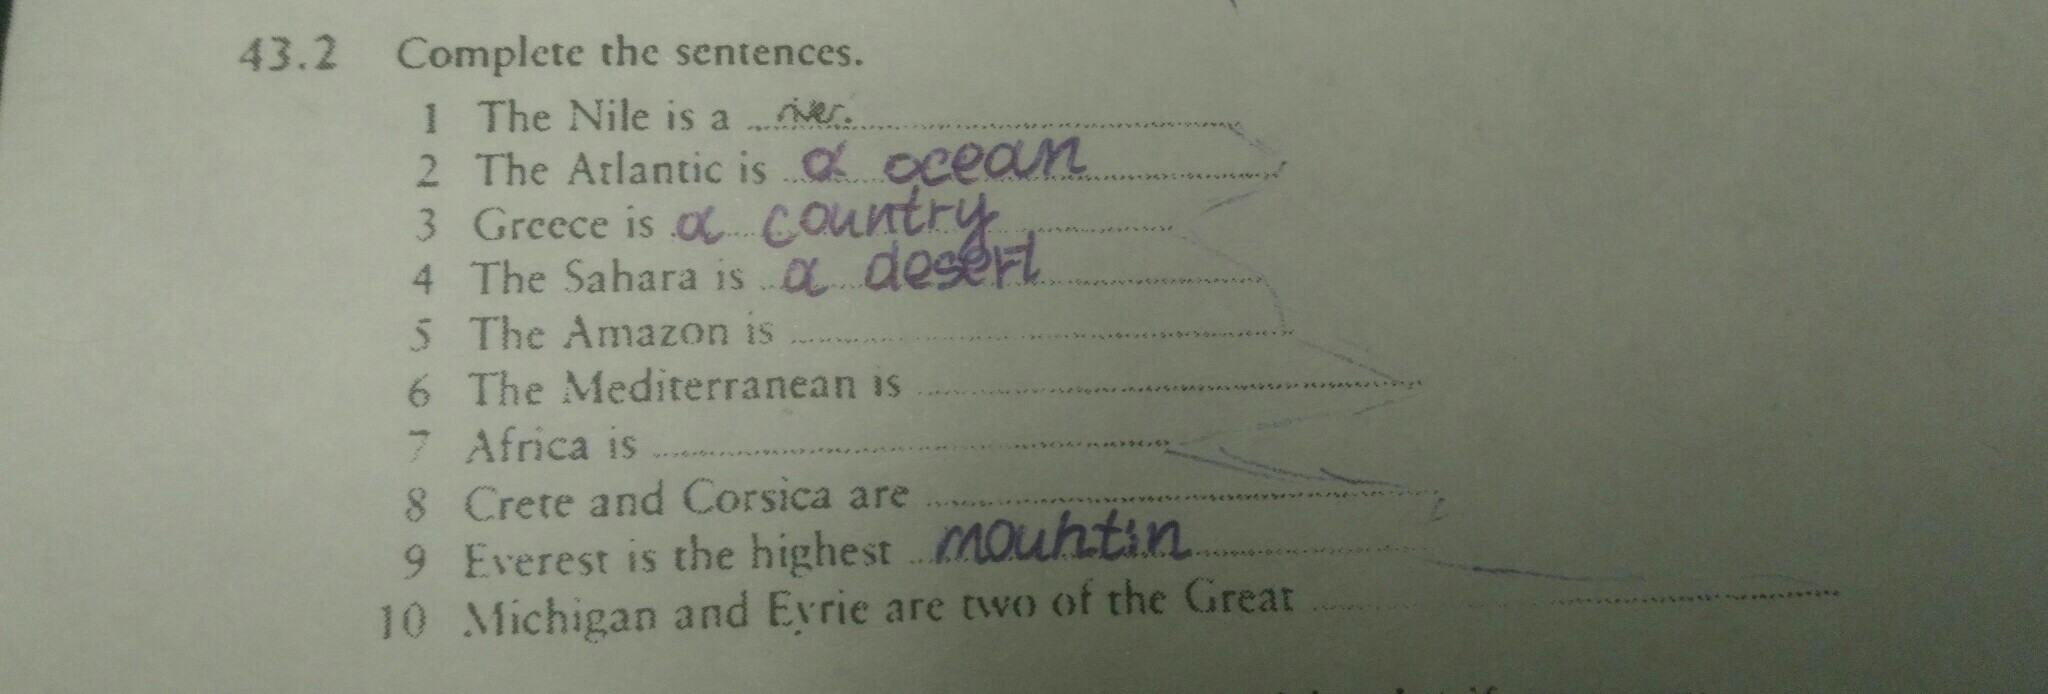 43.2 Complete the sentences.
1 The Nile is a river.
2 The Atlantic is a ocean
3 Greece is a country
4 The Sahara is a desert
5 The Amazon is
6 The Mediterranean is
7 Africa is
8 Crete and Corsica are
9 Everest is the highest mountin
10 Michigan and Eyrie are two of the Great